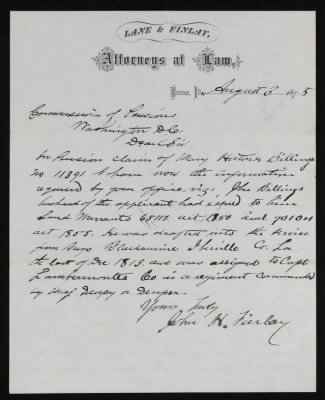 LANE & FINLAY,
Attorneys at Law,
August 3 1875
Commissioner of Pensions
Washington D.C.
Dear Sir
In Pension claim of Mary Billings
No 11391 I have now the information
required by your office, viz, John Billings
husband of the applicant had issued to him
Land Warrants act 1850 and
act 1855. He was drafted into the service
from Co. La
the last of Dec 1813 and was assigned to Capt
Co in a regiment commanded
by Maj or
Yours truly
John H. Finlay